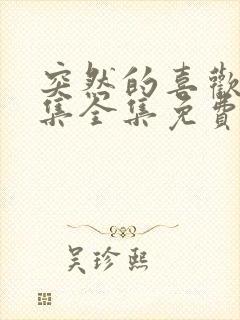 突然的喜歡
集全集免費
吴珍熙